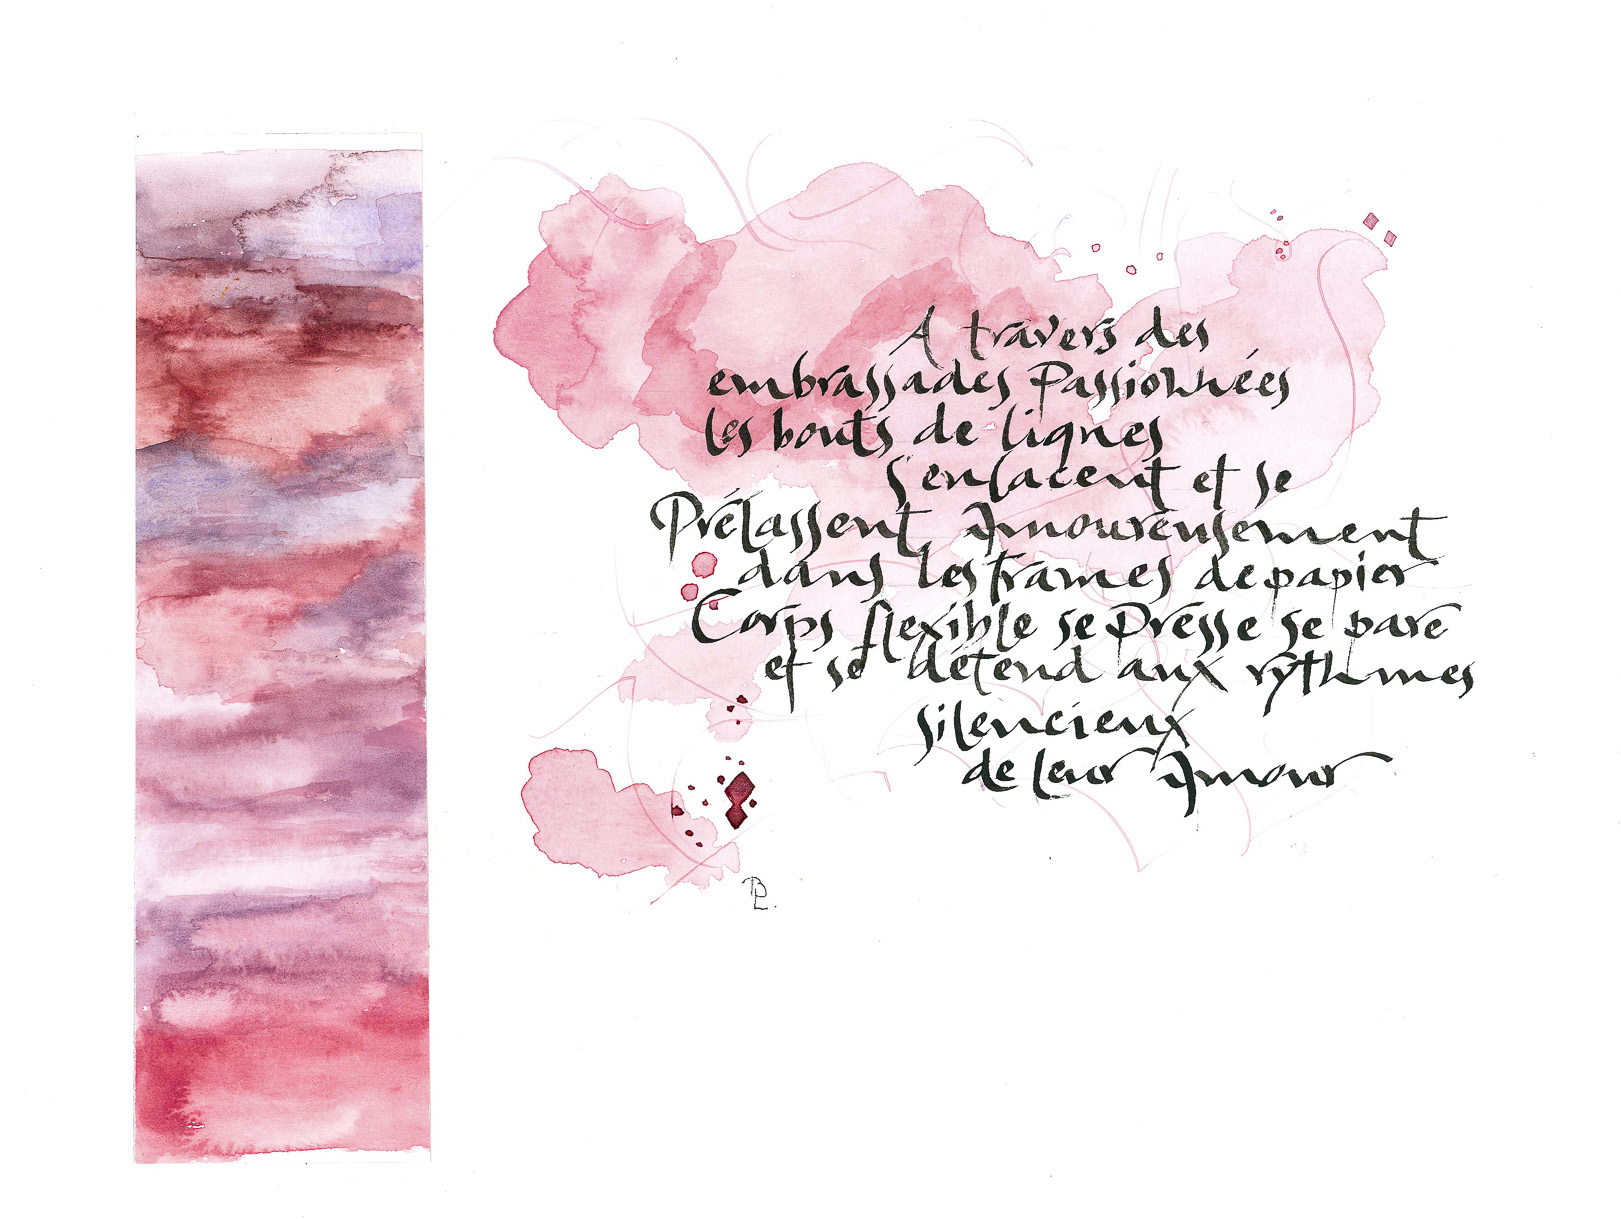 A travers des
embrassades Passionnées
les bouts de lignes
s'enlacent et se
Prélassent Amoureusement
dans les trames de papier
Corps flexible se Presse se pare
et se détend aux rythmes
silencieux
de leur Amour
BL.